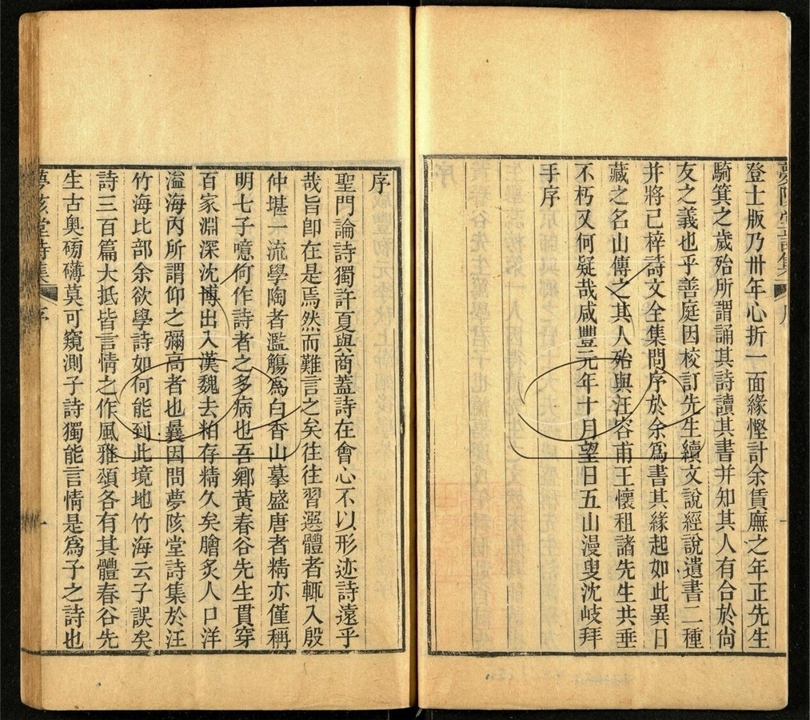 登士版乃卅年心折一面緣慳計余賃廡之年正先生
騎箕之歲殆所謂誦其詩讀其書并知其人有合於尙
友之義也乎善庭因校訂先生續文說經說遺書二種
并將已梓詩文全集問序於余爲書其緣起如此異日
藏之名山傳之其人殆與汪容甫王懷祖諸先生共垂
不朽又何疑哉咸豐元年十月望日五山漫叟沈岐拜
手序
序
聖門論詩獨許夏與商蓋詩在會心不以形迹詩遠乎
哉旨卽在是焉然而難言之矣往往習選體者輒入殷
仲堪一流學陶者濫觴爲白香山摹盛唐者精亦僅稱
明七子噫何作詩者之多病也吾鄕黃春谷先生貫穿
百家淵深沈博出入漢魏去粕存精久矣膾炙人口洋
溢海內所謂仰之彌高者也曩因問夢陔堂詩集於汪
竹海比部余欲學詩如何能到此境地竹海云子誤矣
詩三百篇大抵皆言情之作風雅頌各有其體春谷先
生古奧磅礴莫可窺測子詩獨能言情是爲子之詩也
夢陔堂詩集 序 一